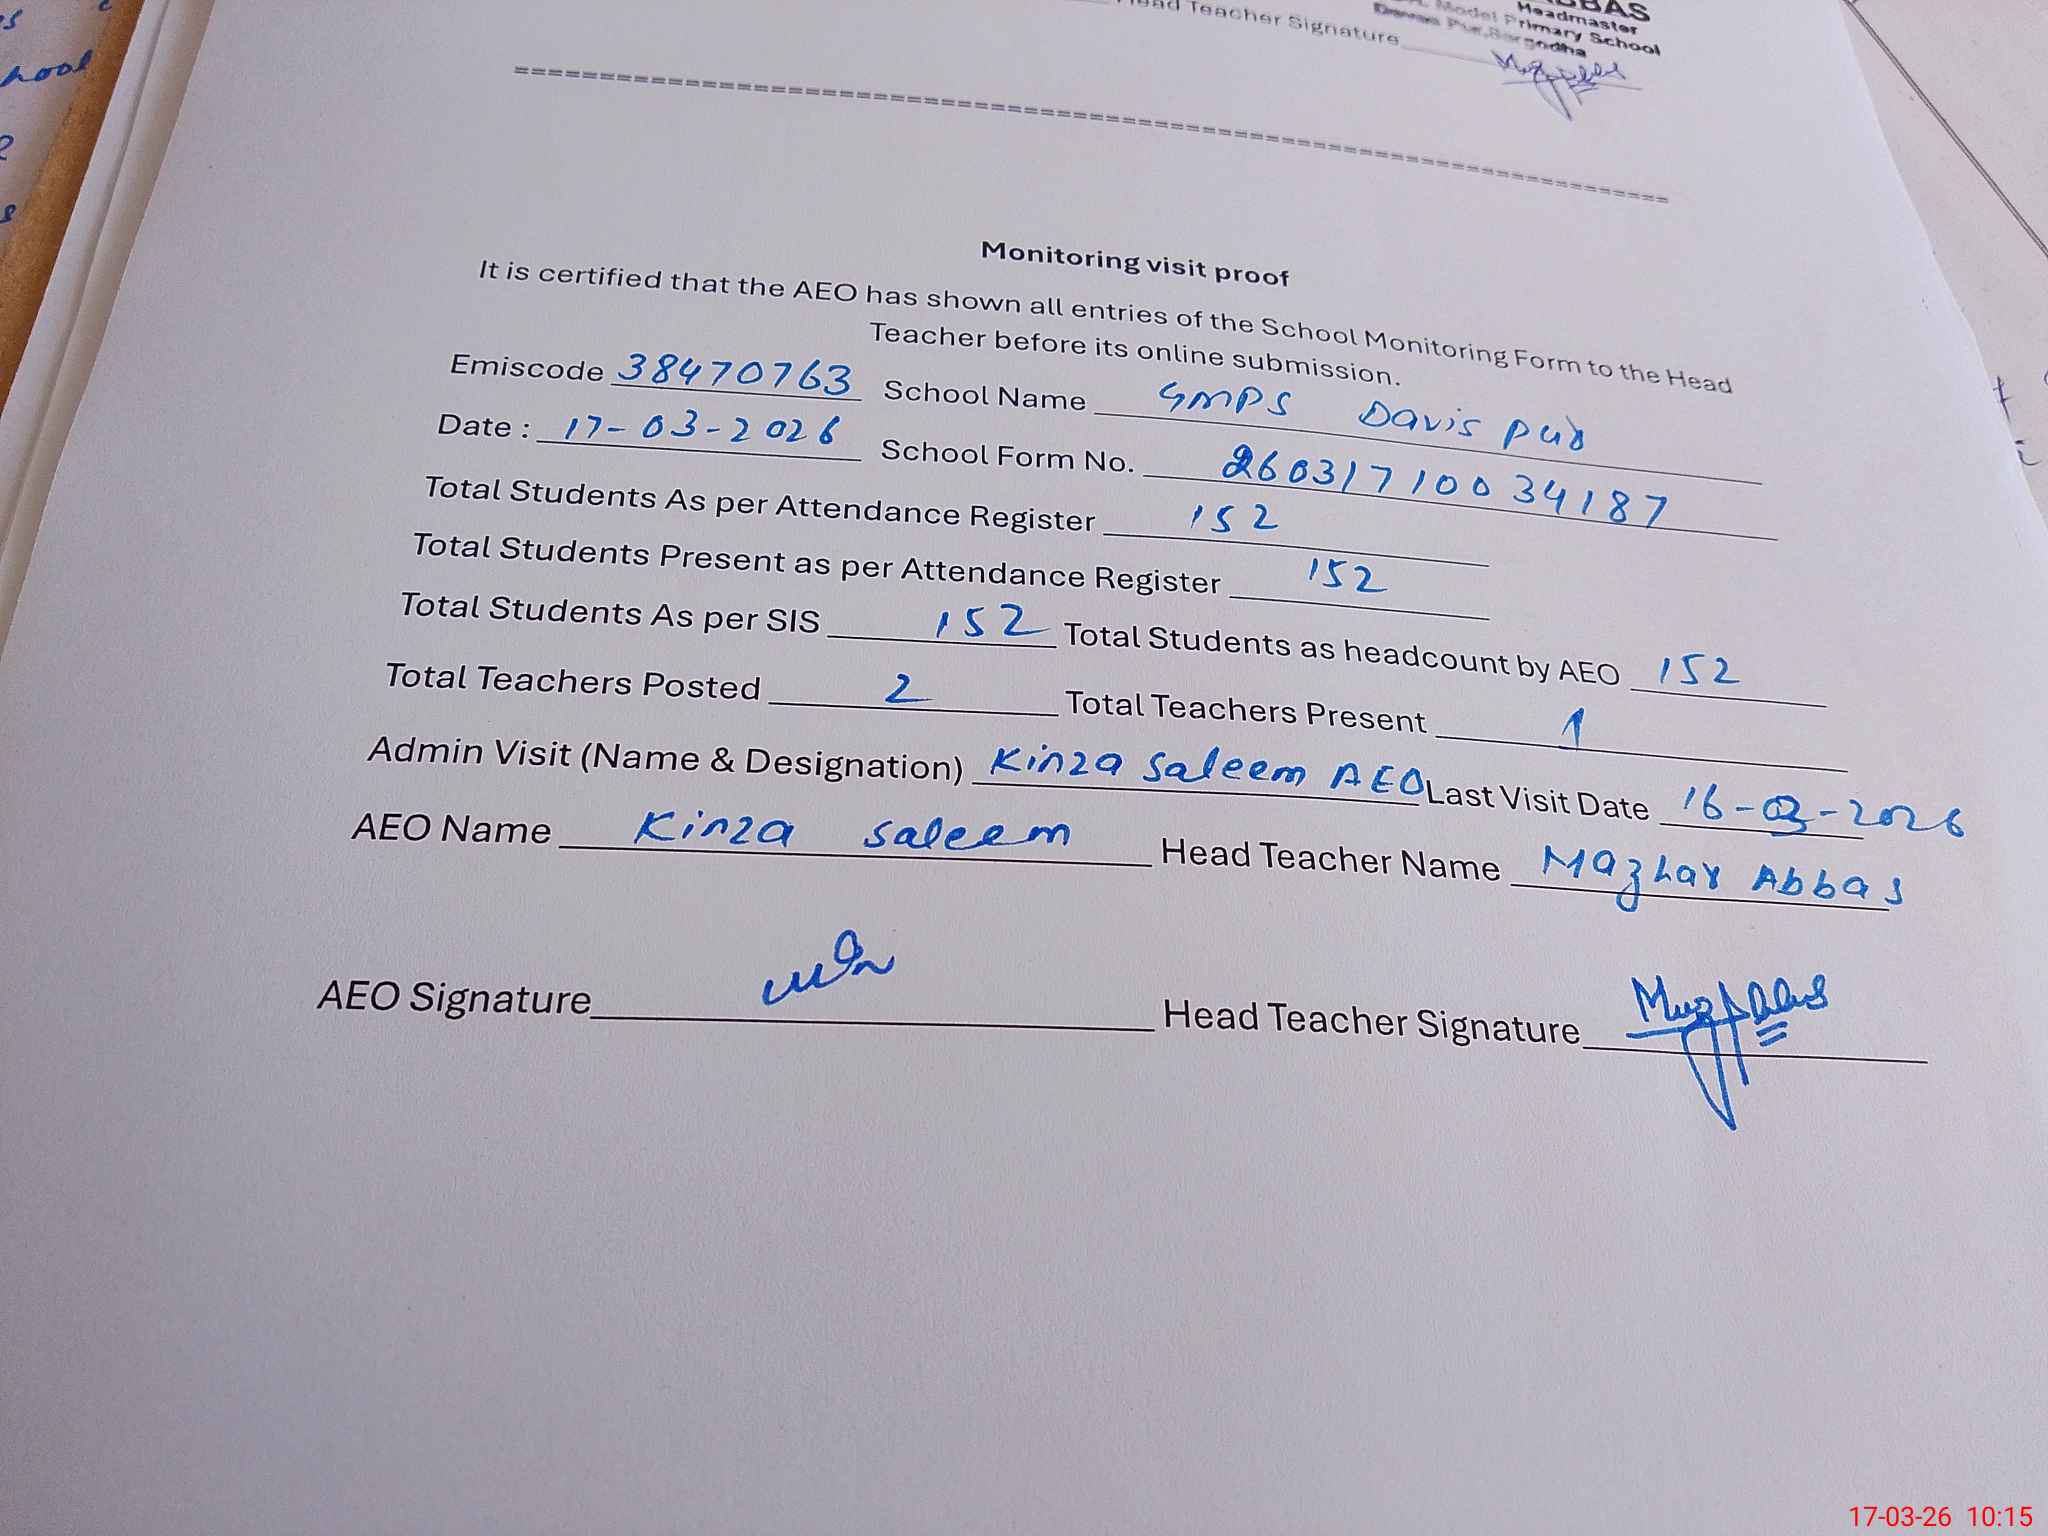 Head Teacher Signature
ABBAS
Headmaster
Model Primary School
Pur, Sargodha
Monitoring visit proof
It is certified that the AEO has shown all entries of the School Monitoring Form to the Head
Teacher before its online submission.
Emiscode 38470763 School Name GMPS Davis pur
Date : 17-03-2026 School Form No. 26031710034187
Total Students As per Attendance Register 152
Total Students Present as per Attendance Register 152
Total Students As per SIS 152 Total Students as headcount by AEO 152
Total Teachers Posted 2 Total Teachers Present 1
Admin Visit (Name & Designation) Kinza Saleem AEO Last Visit Date 16-03-2026
AEO Name Kinza Saleem Head Teacher Name Mazhar Abbas
AEO Signature Head Teacher Signature
17-03-26 10:15